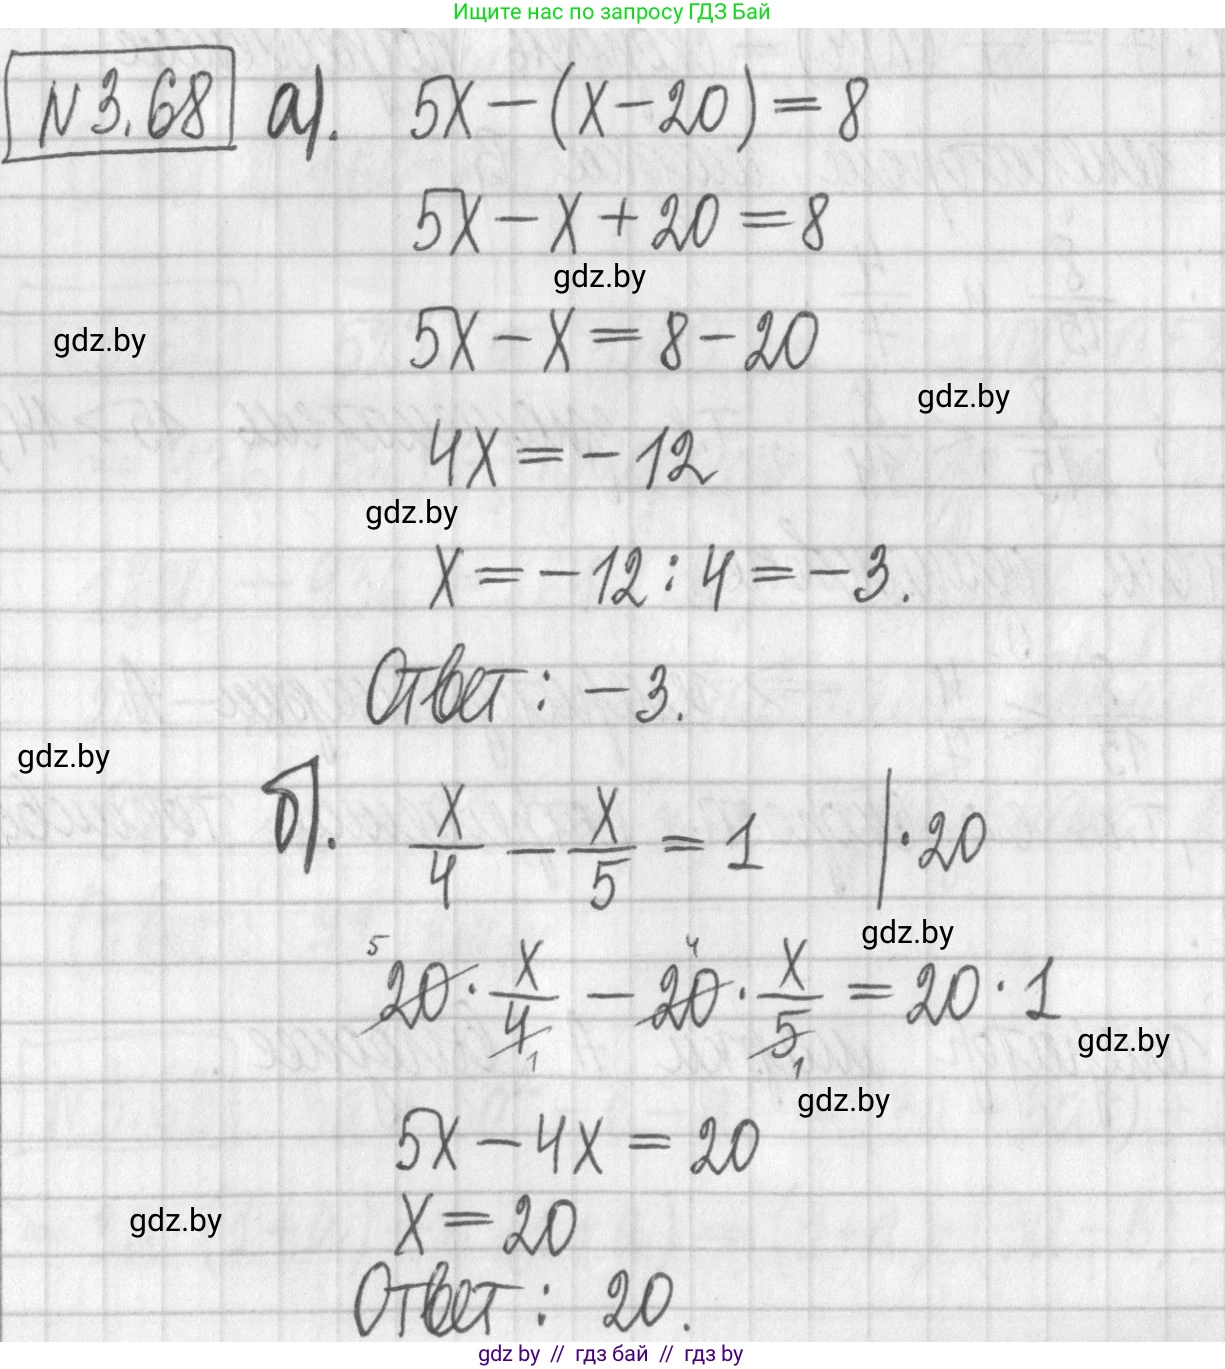 Ищите нас по запросу ГДЗ Бай
N 3.68 а). 5x − (x − 20) = 8
5x − x + 20 = 8
gdz.by
5x − x = 8 − 20
gdz.by
gdz.by
4x = − 12
gdz.by
x = − 12 : 4 = − 3.
Ответ : − 3.
gdz.by
б). x/4 − x/5 = 1 | · 20
gdz.by
5 4
20 · x/4 − 20 · x/5 = 20 · 1
1 1
gdz.by
gdz.by
5x − 4x = 20
x = 20
gdz.by
Ответ : 20.
gdz.by // гдз бай // гдз by